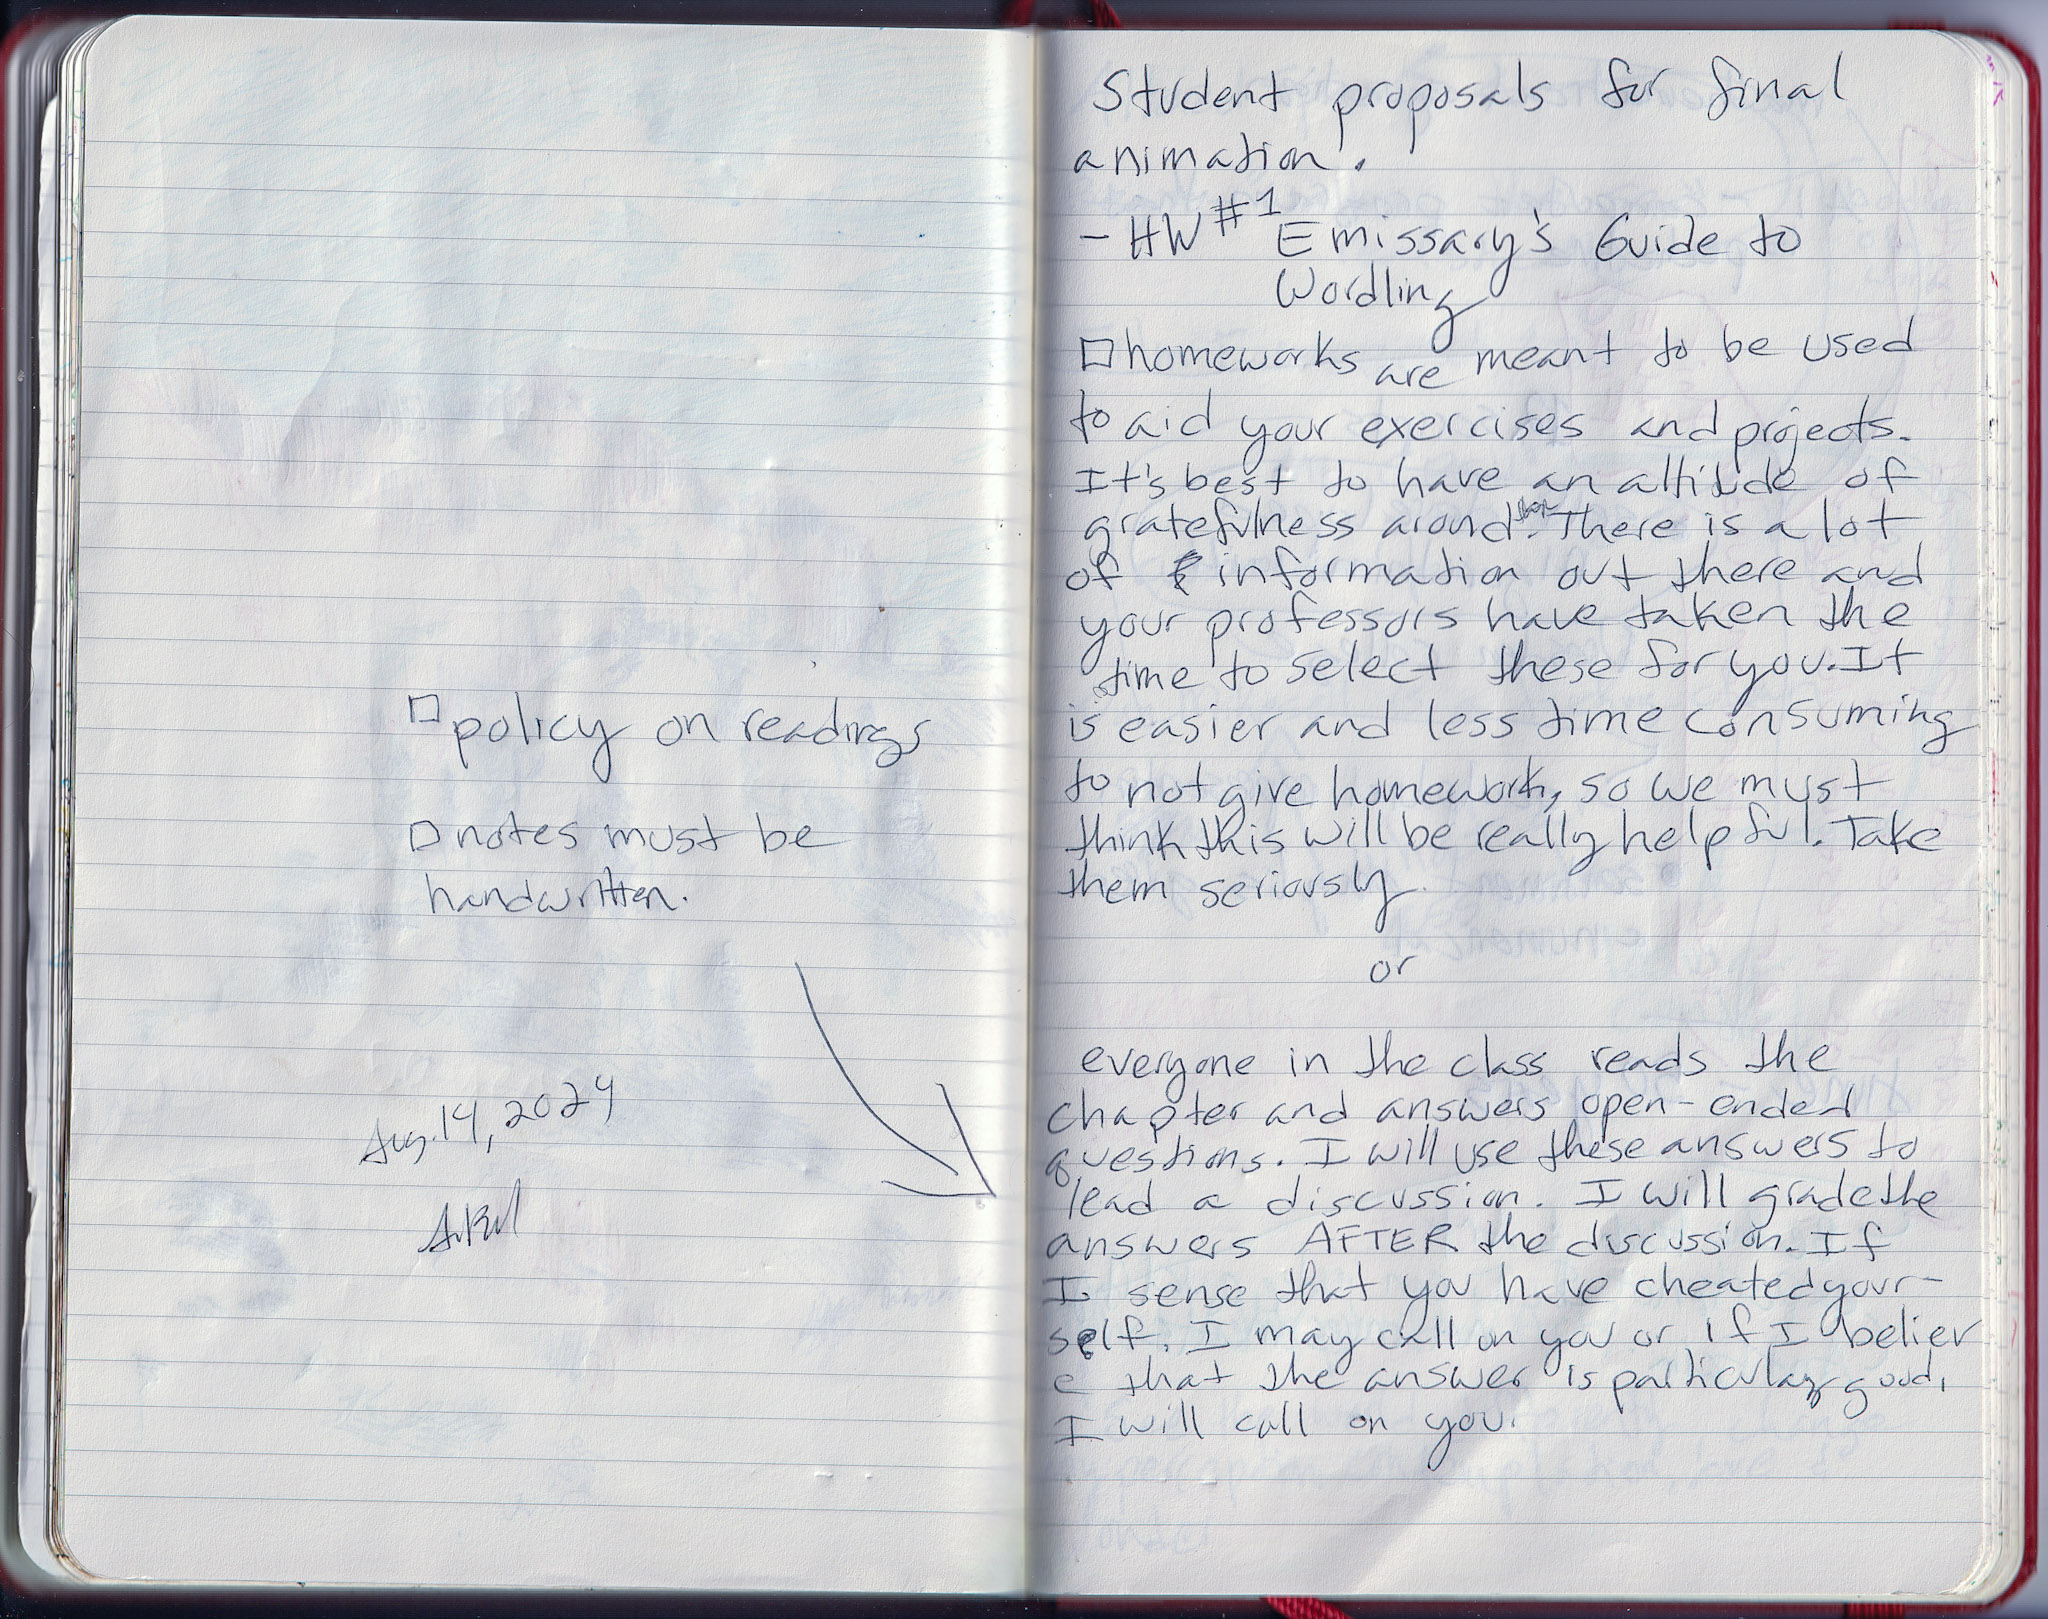 □ policy on readings
□ notes must be
handwritten.
Aug. 14, 2024
Student proposals for final
animation.
- HW #1 Emissary's Guide to
Wordling
□ homeworks are meant to be used
to aid your exercises and projects.
It's best to have an attitude of
gratefulness around them. There is a lot
of information out there and
your professors have taken the
time to select these for you. It
is easier and less time consuming
to not give homework, so we must
think this will be really helpful. Take
them seriously.
or
everyone in the class reads the
chapter and answers open-ended
questions. I will use these answers to
lead a discussion. I will grade the
answers AFTER the discussion. If
I sense that you have cheated your-
self. I may call on you or if I believ
e that the answer is particulary good,
I will call on you.